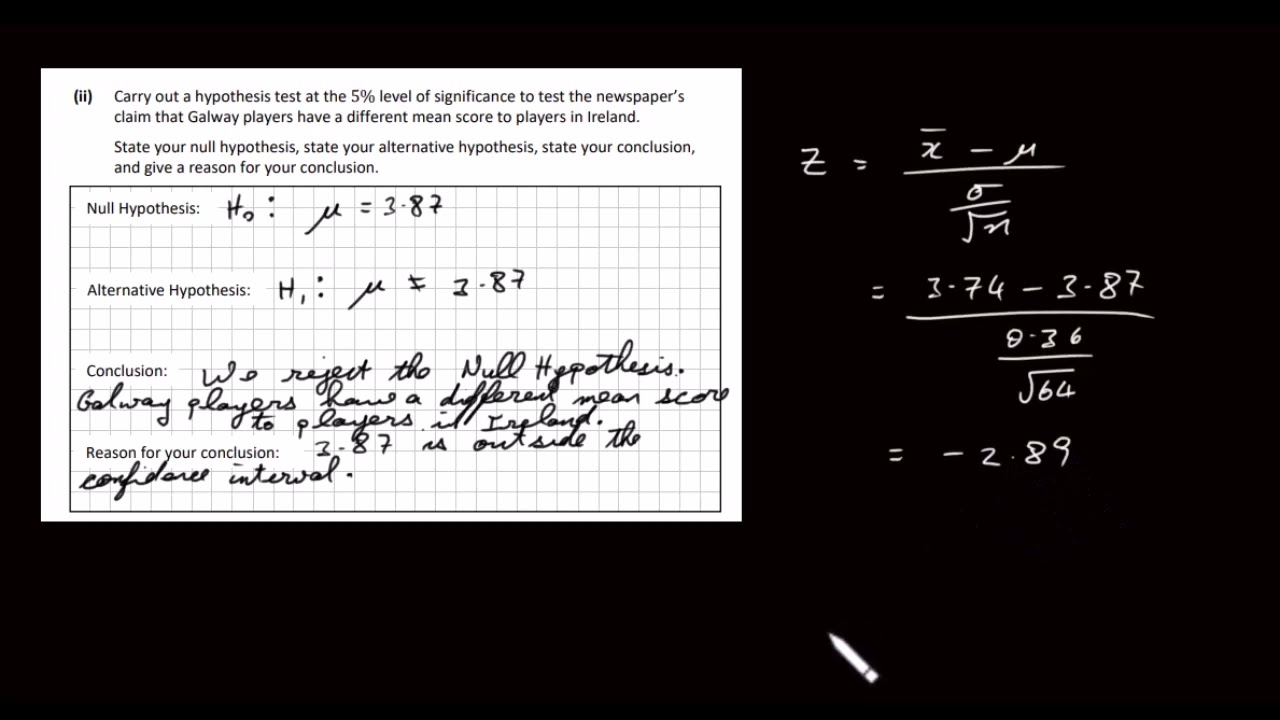 (ii) Carry out a hypothesis test at the 5% level of significance to test the newspaper's
claim that Galway players have a different mean score to players in Ireland.
State your null hypothesis, state your alternative hypothesis, state your conclusion,
and give a reason for your conclusion.
Null Hypothesis: H₀ : μ = 3.87
Alternative Hypothesis: H₁ : μ ≠ 3.87
Conclusion: We reject the Null Hypothesis.
Galway players have a different mean score
to players in Ireland.
Reason for your conclusion: 3.87 is outside the
confidence interval.
Z = x̄ - μ
σ
√n
= 3.74 - 3.87
0.36
√64
= - 2.89